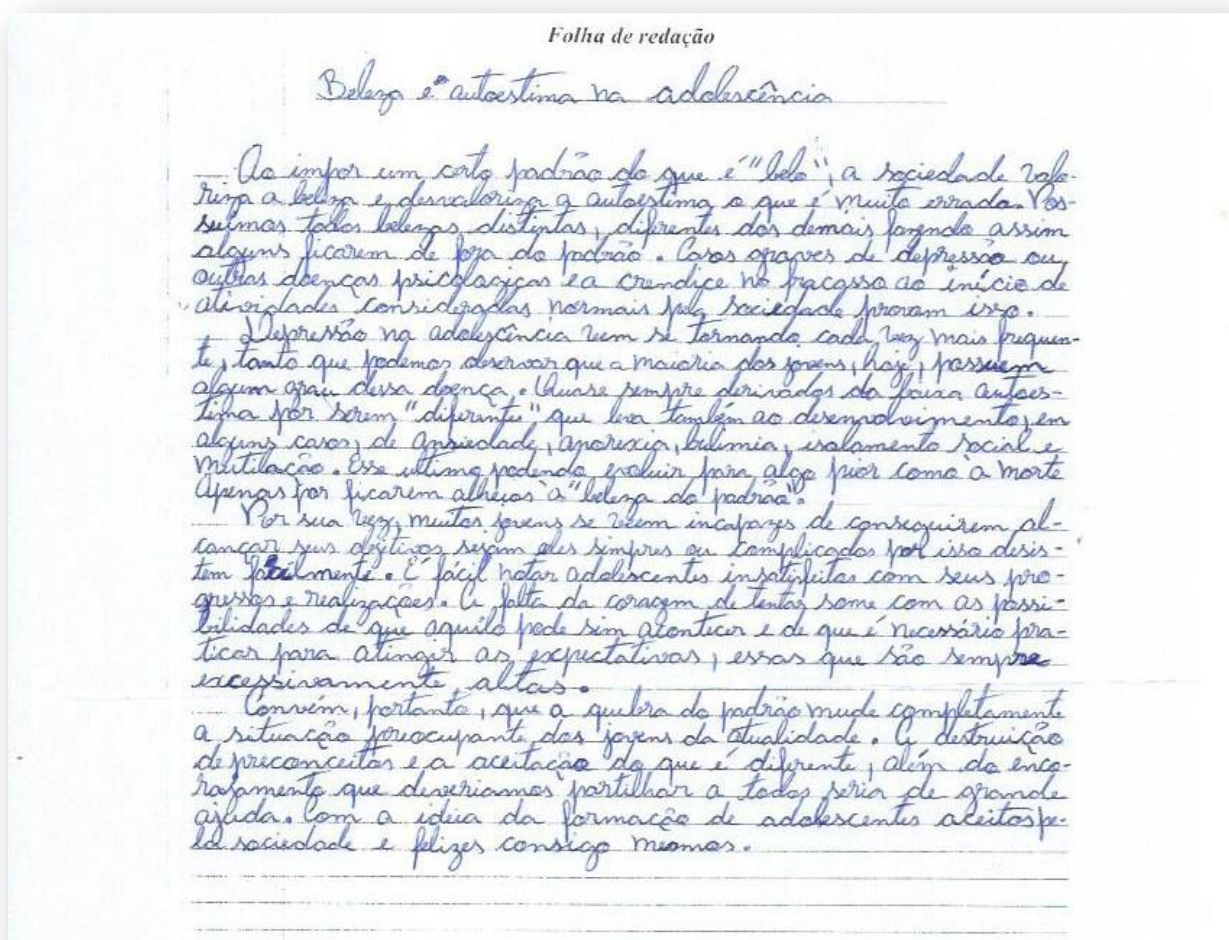 Folha de redação
Beleza e autoestima na adolescência
Ao impor um certo padrão do que é "belo", a sociedade valo-
riza a beleza e desvaloriza a autoestima o que é muito errado. Pos-
suímos todos belezas distintas, diferentes dos demais fazendo assim
alguns ficarem de fora do padrão. Casos graves de depressão ou
outras doenças psicologicas e a crendice no fracasso ao início de
atividades consideradas normais pela sociedade provam isso.
Depressão na adolescência vem se tornando cada vez mais frequen-
te, tanto que podemos observar que a maioria dos jovens, hoje, possuem
algum grau dessa doença. Quase sempre derivados da baixa autoes-
tima por serem "diferente" que leva também ao desenvolvimento, em
alguns casos, de ansiedade, anorexia, bulimia, isolamento social e
mutilação. Esse ultimo podendo evoluir para algo pior como a morte
apenas por ficarem alheios à "beleza do padrão".
Por sua vez, muitos jovens se veem incapazes de conseguirem al-
cançar seus objetivos sejam eles simpres ou complicados por isso desis-
tem facilmente. É fácil notar adolescentes insatisfeitos com seus pro-
gressos e realizações. A falta da coragem de tentar some com as possi-
bilidades de que aquilo pode sim acontecer e de que é necessário pra-
ticar para atingir as expectativas, essas que são sempre
excessivamente altas.
Convém, portanto, que a quebra do padrão mude completamente
a situação preocupante dos jovens da atualidade. A destruição
de preconceitos e a aceitação do que é diferente, além do enco-
rajamento que deveriamos partilhar a todos seria de grande
ajuda. Com a ideia da formação de adolescentes aceitos pe-
la sociedade e felizes consigo mesmos.